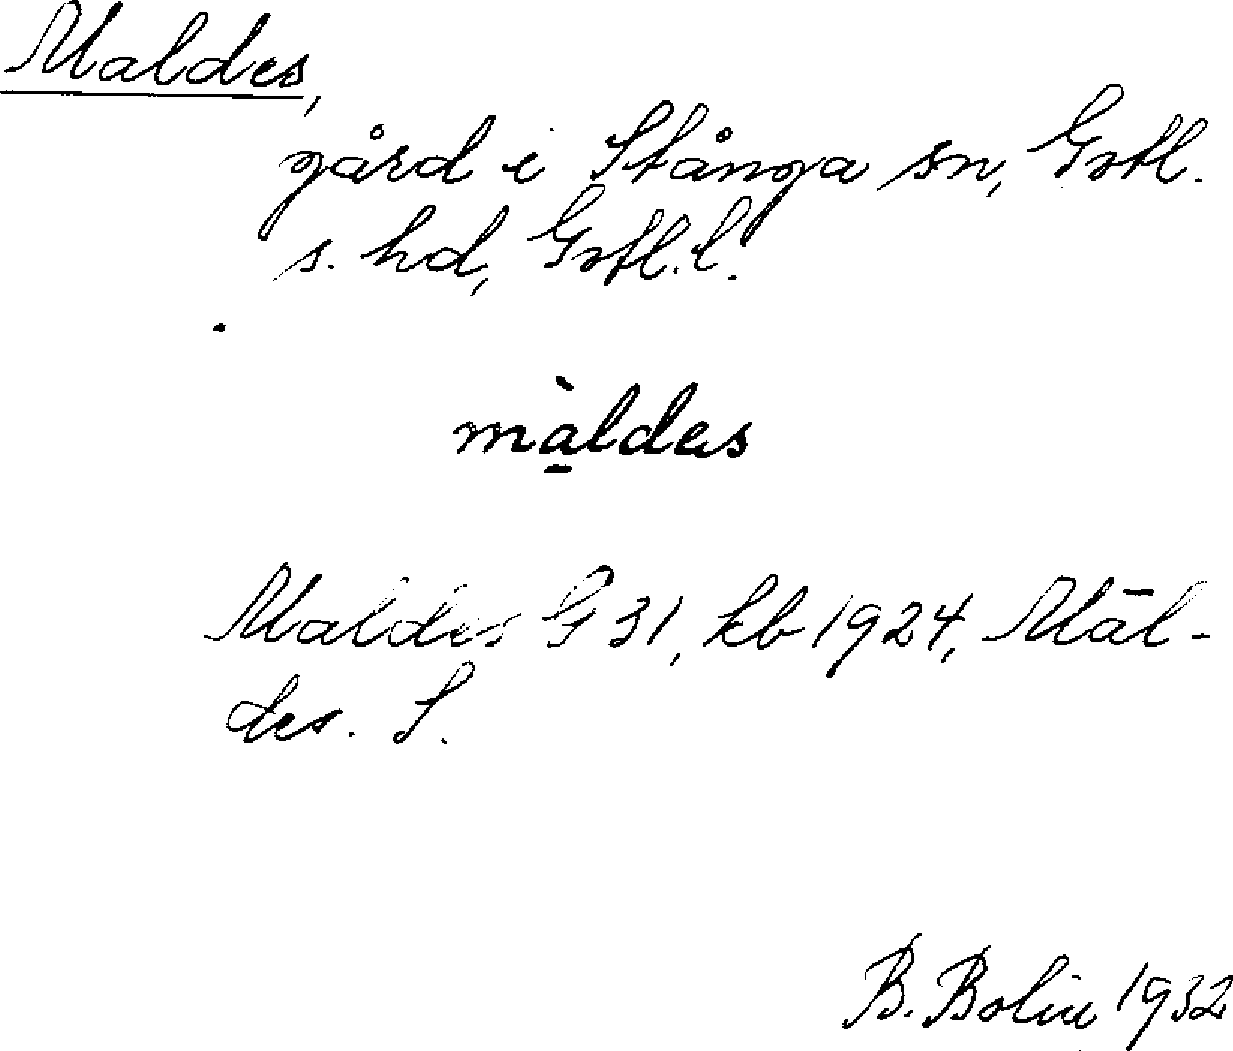 Maldes,
gård i Stånga sn, Gotl.
s. hd, Gotl. l.
màldes
Maldes G 31, kb 1924, Māl-
des. S.
B. Bolin 1932